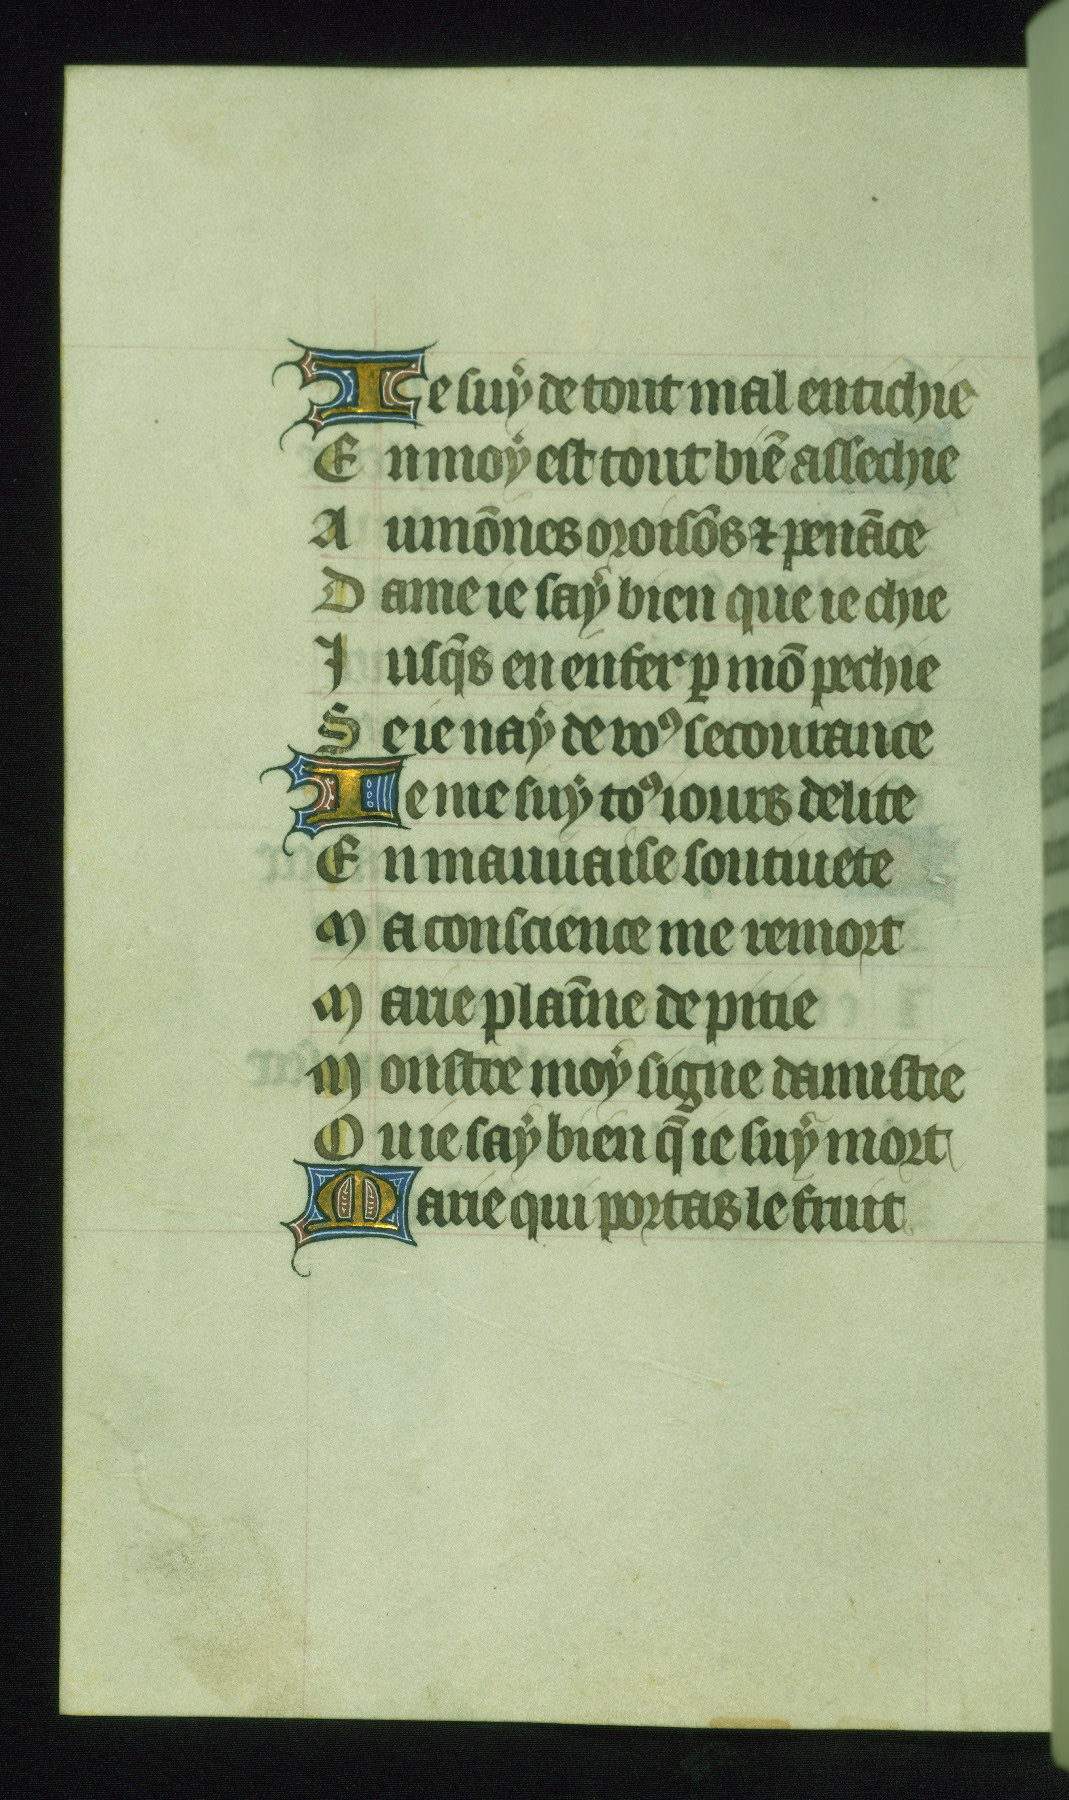 Ie suÿ de tout mal entichie
En moÿ est tout biē assechie
Aumōnes oroisōs ⁊ penāce
Dame ie saÿ bien que ie chie
Jusq̄s en enfer ꝑ mō pechie
Se ie naÿ de voꝰ secourance
Ie me suÿ toꝰ iours delite
En mauuaise soutiuete
Ma conscience me remort
Marie plaīne de pitie
Monstre moÿ signe damistie
Ou ie saÿ bien q̄ ie suÿ mort
Marie qui portas le fruit